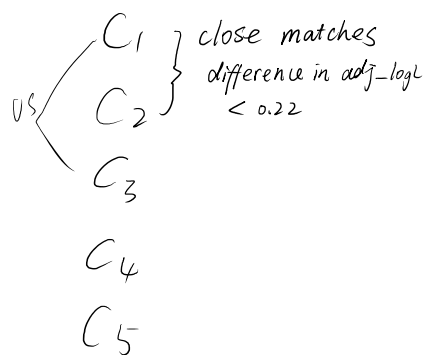 C1 } close matches
difference in adj_logL
vs C2 < 0.22
C3
C4
C5